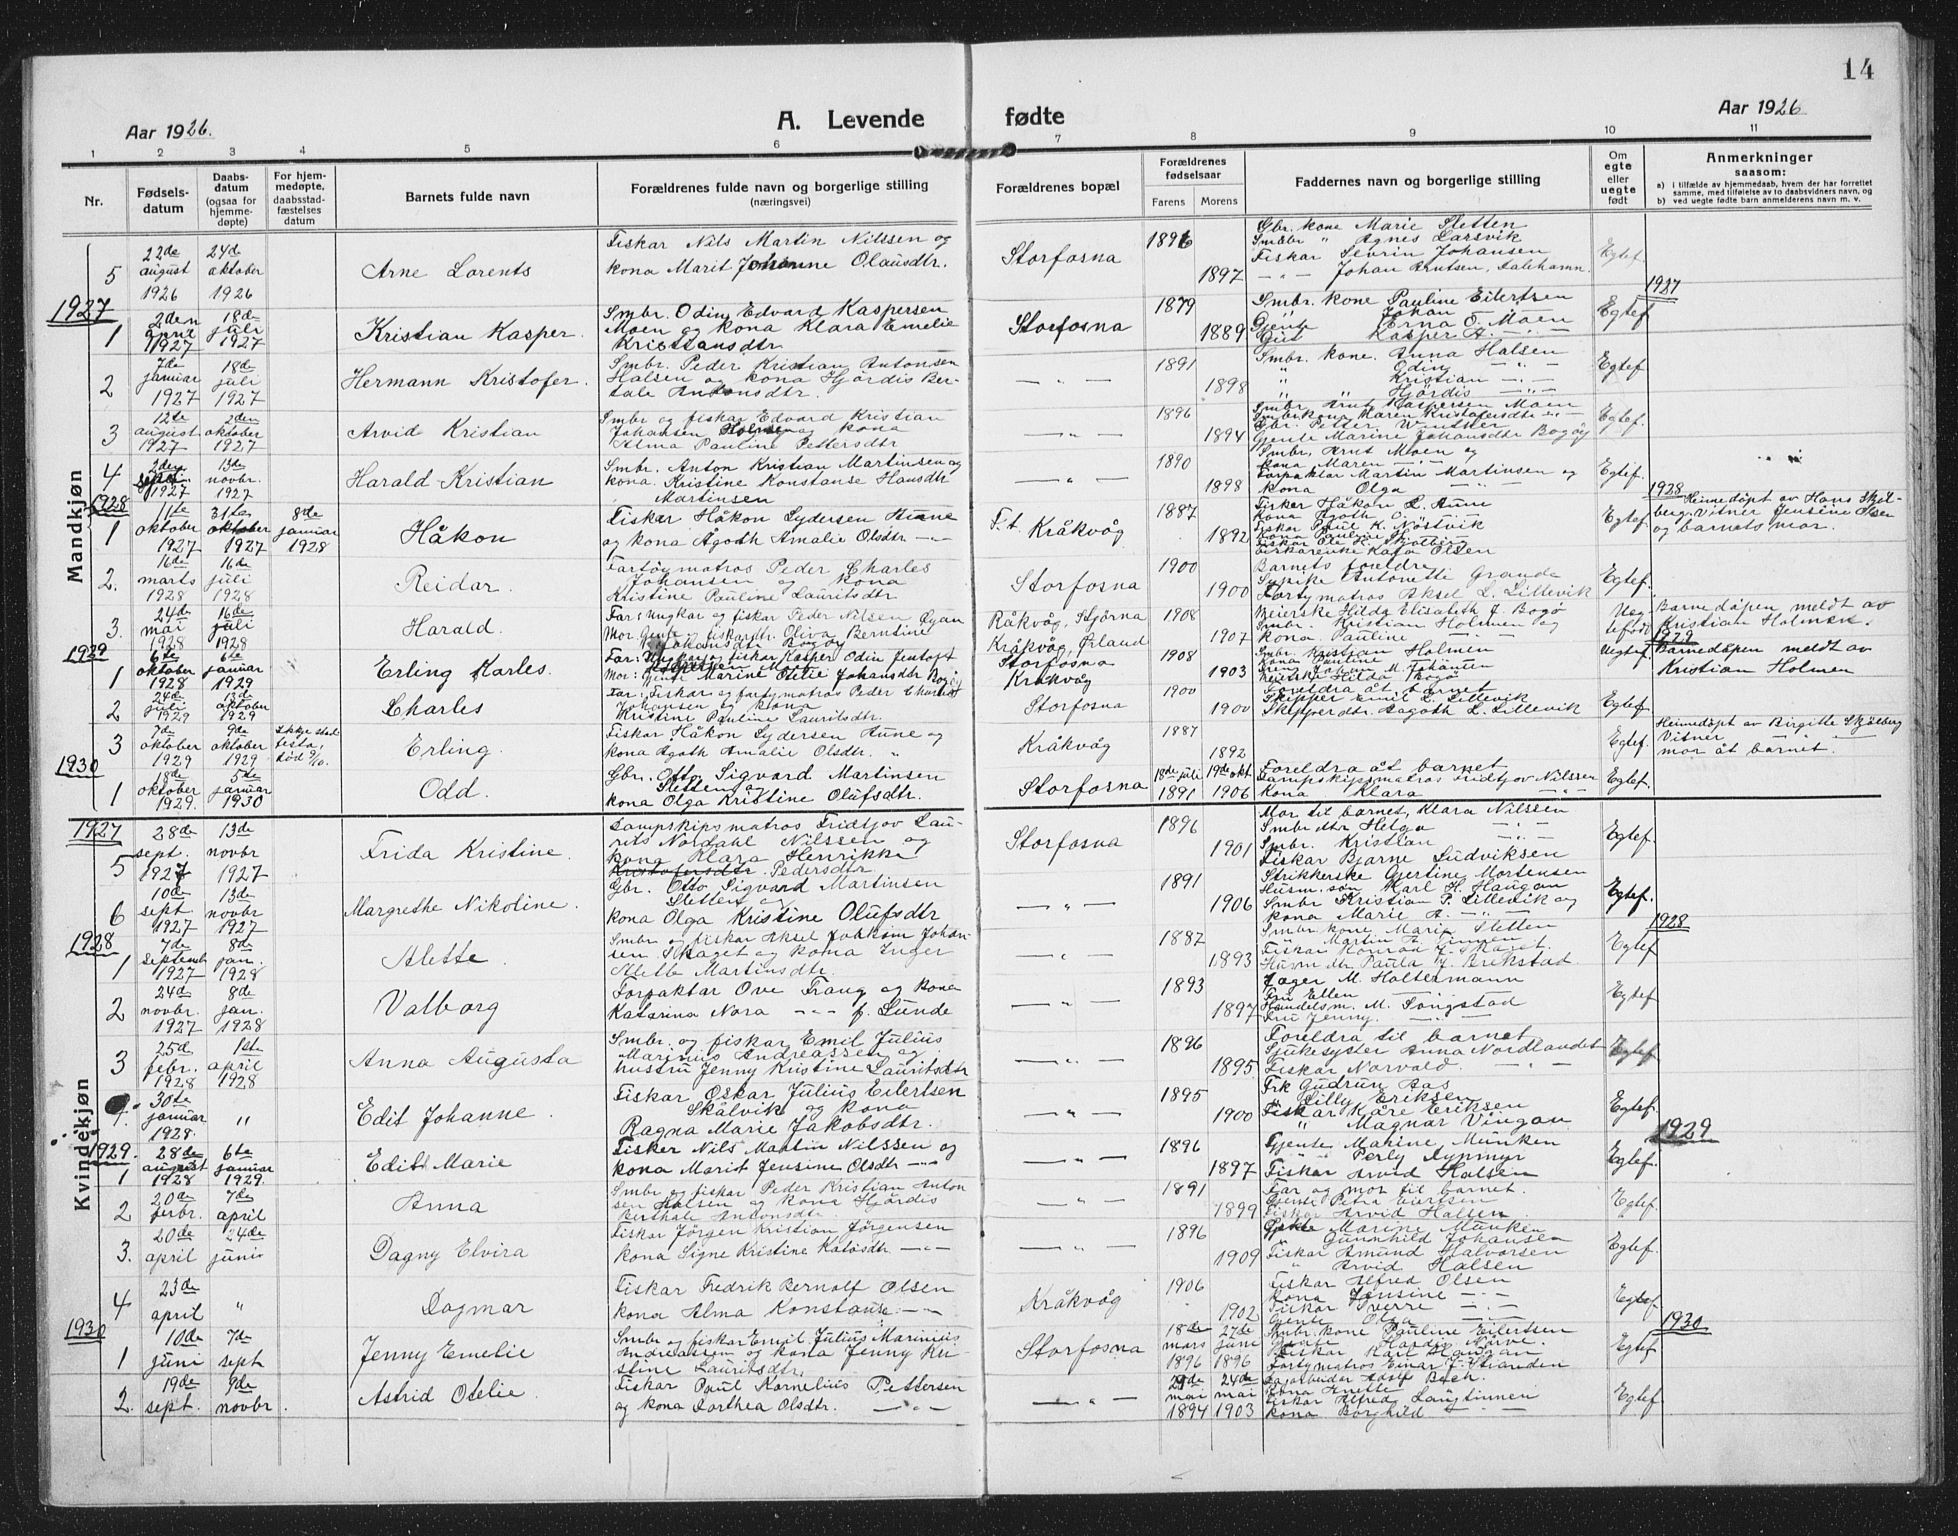 14
Aar 1926.
A. Levende fødte
Aar 1926
1 2 3 4 5 6 7 8 9 10 11
Nr.
Fødsels-
datum
Daabs-
datum
(ogsaa for
hjemme-
døpte)
For hjem-
medøpte,
daabsstad-
fæstelses
datum
Barnets fulde navn
Forældrenes fulde navn og borgerlige stilling
(næringsvei)
Forældrenes bopæl
Forældrenes
fødselsaar
Farens Morens
Faddernes navn og borgerlige stilling
Om
egte
eller
uegte
født
Anmerkninger
saasom:
a) i tilfælde av hjemmedaab, hvem der har forrettet
samme, med tilføielse av to daabsvidners navn, og
b) ved uegte fødte barn anmelderens navn m. v.
Mandkjøn
5 22de august 1926 24de oktober 1926 Arne Lorents
Fiskar Nils Martin Nilssen og
kona Marit Johanne Olausdtr.
Storfosna 1896 1897
Gbr. kone Marie Sletten
Smbr " Agnes Larsvik
Fiskar Sevrin Johansen
Johan Knutsen,
Egtef.
1927
1 2den 1927 18de juli 1927 Kristian Kasper.
Smbr. Odin Edvard Kaspersen
Moen og kona Klara Emelie
Kristiansdtr
Storfosna 1879 1889
Smbr. kone Pauline Eilertsen
" Johan
Gjente Erna O. Moen
Gut Kasper A. —"—
Egtef
1927
2 7de januar 1927 18de juli 1927 Hermann Kristofer.
Smbr. Peder Kristian Antonsen
Halsen og kona Hjördis Ber-
tale Antonsdtr.
— " — 1891 1898
Smbr. kone. Anna Halsen
" Odin —"—
" Kristian —"—
" " Hjördis —"—
Egtef
3 12te august 1927 2den oktober 1927 Arvid Kristian
Smbr og fiskar Edvard Kristian
Johansen Holmen og kona
Alma Pauline Pettersdtr
— " — 1896 1894
Smbr. Arnt Kaspersen Moen
Smbrkona Maren Kristofersdtr —"—
Gbr. Petter Winster
Gjente Marine Johansdtr Bogöy
Egtef.
4 2den 1927 13de novbr. 1927 Harald Kristian
Smbr. Anton Kristian Martinsen og
kona. Kristine Konstanse Hansdtr
Martinsen
— " — 1890 1898
Smbr, Arnt Moen og
kona Maren —"—
Forpaktar Martin Martinsen og
kona Olga —"—
Egtef.
1928
1 11te oktober 1927 31te oktober 1927 8de januar 1928 Håkon
Fiskar Håkon Lydersen Aune
og kona Agoth Amalie Olsdtr —"—
Kråkvåg 1887 1892
Fisker Håkon L. Aune
kona Agoth O.
Fiskar Paul K. Nöstvik
kona Pauline
Fiskar Ole K. Skjölberg
Fiskarenke Kaja Olsen
Egtef.
1928
Heimedöpt av Hans Skjöl-
berg. Vitner Jensine Olsen
og barnets mor.
2. 16de marts 1928 16de juli 1928 Reidar.
Fartöymatros Peder Charles
Johansen og kona
Kristine Pauline Lauritsdtr
Storfosna 1900 1900
Barnets foreldre
Sypike Antonette Grande
Fartymatros Aksel L. Lillevik
Egtef.
3. 24de mai 1928 16de juli 1928 Harald.
Far: Ungkar og fiskar Peder Nilsen Öyan
Mor: Gjente og fiskardtr. Oliva Berntine
Johansdtr Bogöy
Råkvåg, Stjörna
Kråkvåg, Ørland
1908 1907
Meierske Hilda Elisabeth J. Bogø
Smbr. Kristian Holmen og
kona Pauline —"—
Ueg
tefödt
Barnedåpen meldt av
Kristian Holmen.
1929
1 6te oktober 1928 6te januar 1929 Erling Karles.
Far: Ungkar og fiskar Kasper Odin Jentoft
Kaspersen Moen
Mor: Gjente Marine Otelie Johansdtr Bogöy
Storfosna
Kråkvåg
1908 1903
Smbr. Kristian Holmen
kona Pauline —"—
Johan M. Johansen
Meierske Hilda Bogø
Uegtef.
1929
Barnedåpen meldt av
Kristian Holmen
2 24de juli 1929 13de oktober 1929 Charles
Far: Fiskar og fartymatros Peder Charles
Johansen og kona
Kristine Pauline Lauritsdtr.
Storfosna 1900 1900
Foreldra åt barnet
Skipper Emil L. Lillevik
Skipperdtr. Aagoth L. Lillevik
Egtef
3 7de oktober 1929 9de oktober 1929 Ikkje stad
festa, död 9/10. Erling.
Fiskar Håkon Lydersen Aune og
kona Agoth Amalie Olsdtr. "
Kråkvåg 1887 1892
Egtef.
Heimedöpt av Birgitte Skjölberg
Vitner
mor åt barnet.
1930
1 18de oktober 1929. 5te januar 1930 Odd.
Gbr. Otto Sigvard Martinsen
Sletten og
kona Olga Kristine Olufsdtr.
Storfosna 18de juli 1891 19de okt 1906
Foreldra åt barnet
Dampskipsmatros Fridtjov Nilssen
kona Klara —"—
Egtef
Kvindekjøn
1927
5 28de sept. 1927 13de novbr 1927 Frida Kristine.
Dampskipsmatros Fridtjov Lau-
rits Nordahl Nilssen og
kona Klara Henrikke
Kristofersdtr. Pedersdtr
Storfosna 1896 1901
Mor til barnet, Klara Nilssen
Smbr dtr Helga —"—
Smbr. Kristian —"—
Fiskar Bjarne Ludviksen
Egtef.
6 10de sept 1927 13de novbr 1927 Margrethe Nikoline.
Gbr. Otto Sigvard Martinsen
Sletten og
kona Olga Kristine Olufsdtr
— " — 1891 1906
Strikkerske Gjertine Mortensen
Husm. søn Karl H. Haugan
Smbr Kristian P. Lillevik og
kona Marie A. —"—
Egtef.
1928
1 7de septemb 1927 8de jan. 1928 Alette.
Smbr og fiskar Aksel Joakim Johan-
sen Skaget og kona Inger
Alette Martinsdtr.
— " — 1887 1893
Smbr. kone Marie Sletten
" Martin A. Vingen
Fiskar Konrad J. Skaget.
Husm dtr Paula M. Brekstad
Egtef
1928
2 24de novbr. 1927 8de jan. 1928 Valborg
Forpaktar Ove Frang og kona
Katarina Nora —"— f. Lunde
— " — 1893 1897
Jæger M. Holtermann
Fru Ellen —"—
Handelsm. M. Songstad
Fru Jenny. —"—
Egtef
3 25de febr. 1928 1ste april 1928 Anna Augusta
Smbr. og fiskar Emil Julius
Marinus Andreassen og
hustru Jenny Kristine Lauritsdtr
— " — 1896 1895
Foreldra til barnet
Sjukesyster Anna Nordlandet
Fiskar Norvald —"—
Egtef
4. 30te januar 1928. " Edit Johanne.
Fiskar Oskar Julius Eilertsen
Skålvik og kona
Ragna Marie Jakobsdtr.
— " — 1895 1900
Frk Gudrun Aas
" Lilly Eriksen
Fiskar Kåre Eriksen
" Magnar Vingan
Egtef.
1929.
1 28de august 1928 6te januar 1929. Edit Marie
Fisker Nils Martin Nilssen og
kona Marit Jensine Olsdtr —"—
— " — 1896 1897
Gjente Marine Munken
" Perly
Fiskar Arvid Halsen
Egtef.
1929
2 20de febr. 7de april Anna
Smbr og fiskar Peder Kristian Anton
sen Halsen og kona Hjördis
Berthale Antonsdtr.
— " — 1891 1899
Far og mor til barnet.
Gjente Petra Eilertsen
Fiskar Arvid Halsen
Egtef.
3. 20de april 24de juni Dagny Elvira
Fiskar Jörgen Kristian Jörgensen
kona Signe Kristine —"—
— " — 1896 1909
Gjente Marine Munken
" Gunnhild Johansen
Fiskar Amund Halvorsen
" Arvid Halsen
Egtef.
4 23de april " Dagmar
Fiskar Fredrik Bernolf Olsen
kona Alma Konstanse —"—
Kråkvåg 1906 1902
Fiskar Alfred Olsen
kona Jensine —"—
Fiskar Sverre —"—
Gjente Olga —"—
Egtef
1930
1 10de juni 7de sept Jenny Emelie
Smbr og fiskar Emil Julius Marinius
Andreassen og kona Jenny Kri-
stine Lauritsdtr.
Storfosna 18de mars 1896 27de juni 1896
Smbr. kone Pauline Eilertsen
Fiskar Karl Haugan
Fartymatros Einar J. Stranden
Egtef
1930
2. 19de sept. 9de novbr. Astrid Otelie.
Fiskar Paul Kornelius Pettersen
og kona Dorthea Olsdtr. —"—
— " — mai 1894 24de mai 1903
Adolf Bach.
kona Anette —"—
Fiskar Alfred Langtinnen
kona Borghild —"—
Egtef.